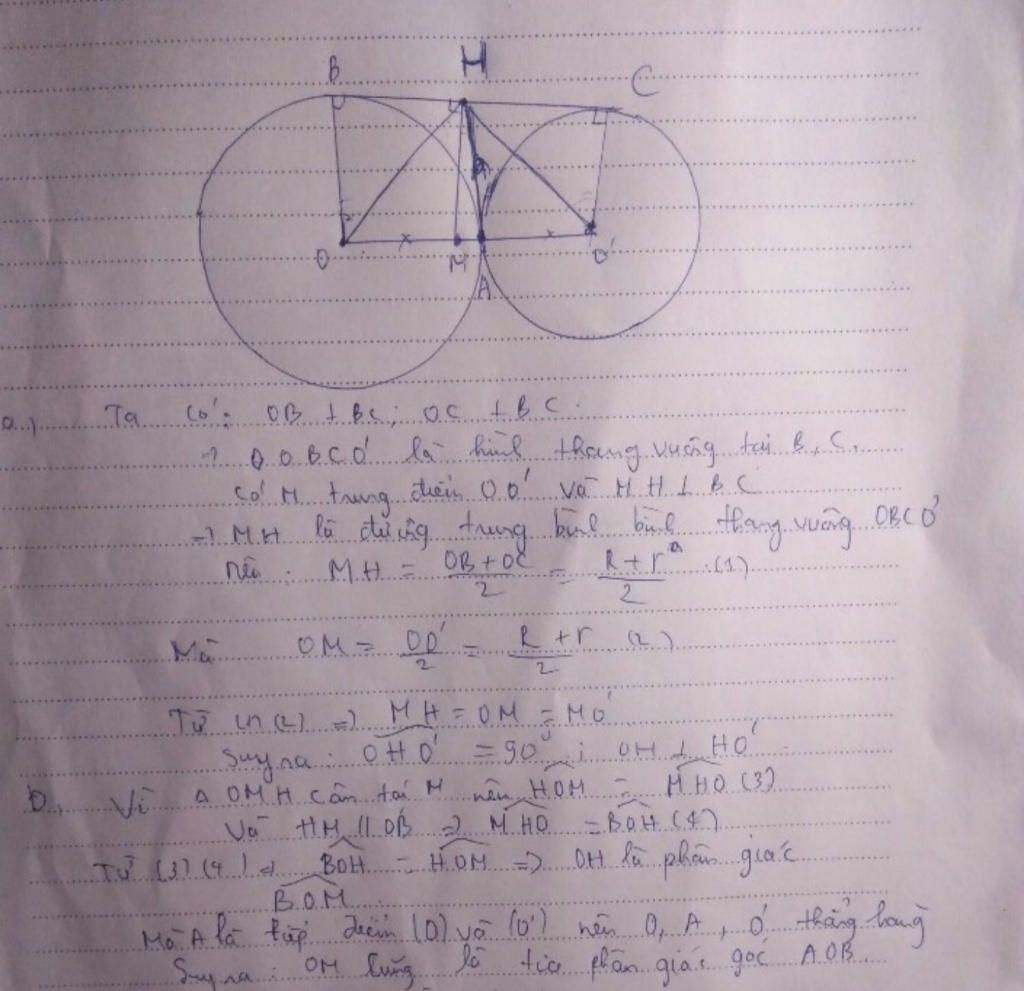 B H C
O M A O'
a, Ta có: OB ⊥ BC; OC ⊥ BC.
→ ◊ OBCO' là hình thang vuông tại B, C.
Có M trung điểm OO' và MH ⊥ BC
=> MH là đường trung bình hình thang vuông OBCO'
nên: MH = OB + OC / 2 = R + r / 2 (1)
Mà OM = OO' / 2 = R + r / 2 (2)
Từ (1) (2) => MH = OM = MO'
Suy ra: OHO' = 90°; OH ⊥ HO'
b, Vì Δ OMH cân tại M nên HOM = MHO (3)
Và HM // OB => MHO = BOH (4)
Từ (3) (4) => BOH = HOM => OH là phân giác
BOM
Mà A là tiếp điểm (O) và (O') nên O, A, O' thẳng hàng
Suy ra: OM cũng là tia phân giác góc AOB.